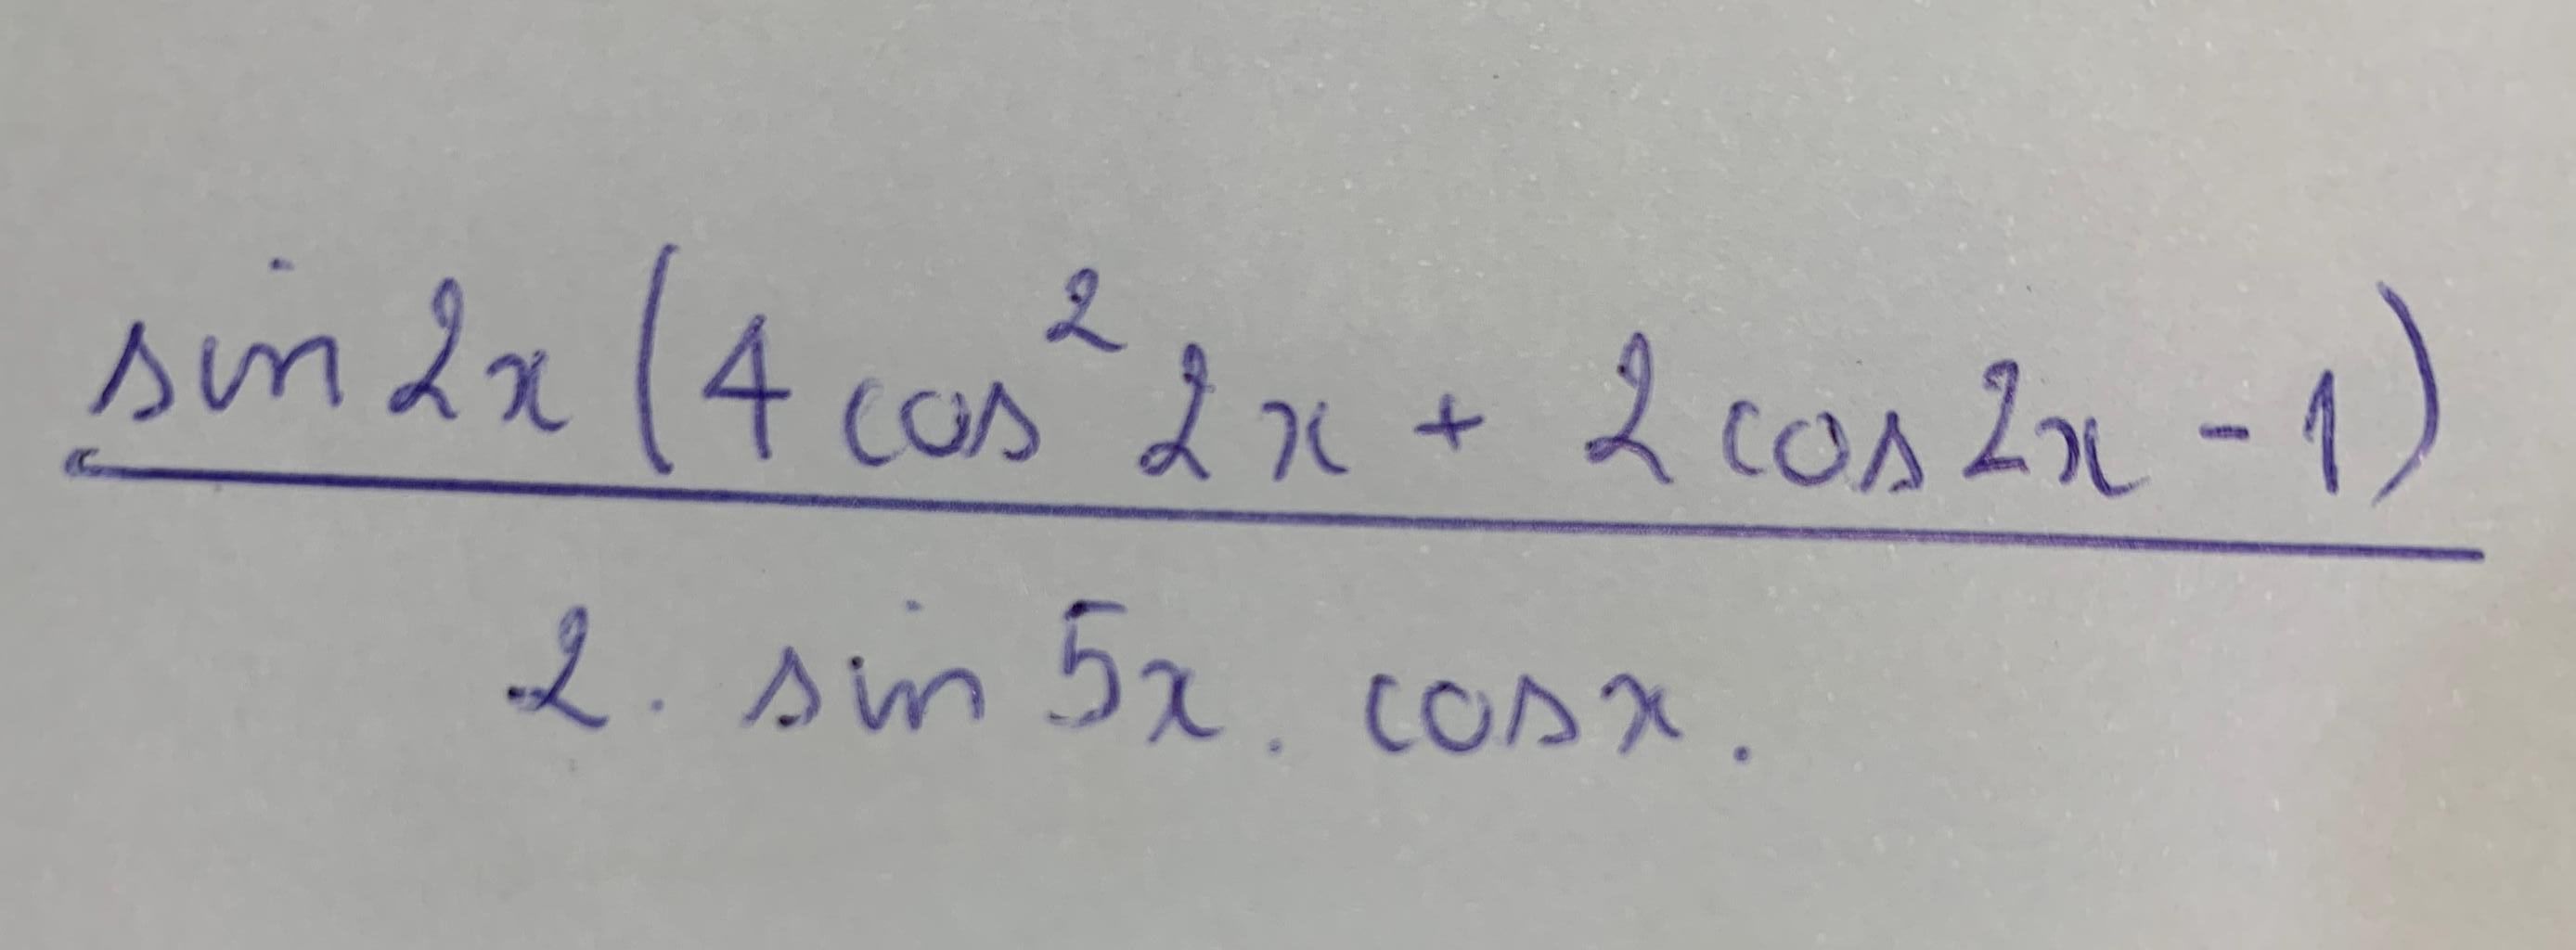 sin 2x (4 cos² 2x + 2 cos 2x - 1)
2 . sin 5x . cos x .